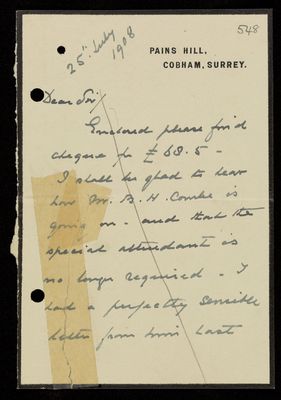 548
25th July 1908
PAINS HILL,
COBHAM, SURREY.
Dear Sir/
Enclosed please find
cheque for £ 68.5 -
I shall be glad to hear
how Mr. B. H. Combe is
going on - and that the
special attendant is
no longer required - I
had a perfectly sensible
letter from him last